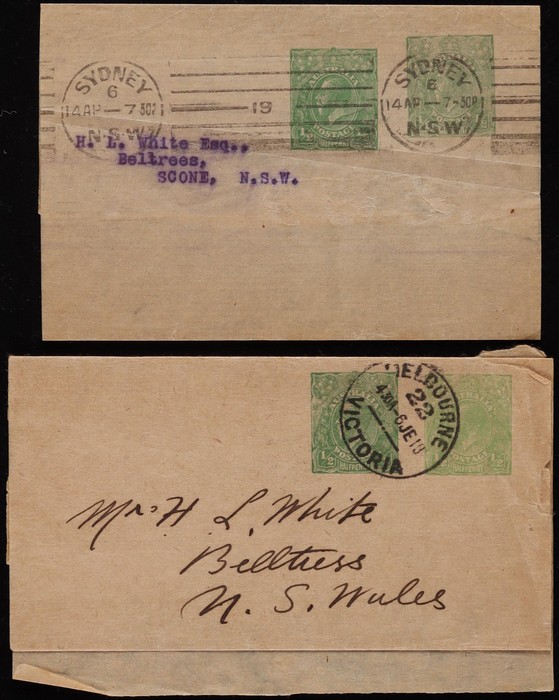 SYDNEY
6
14 AP — 7-30P
N.S.W.
19
AUSTRALIA
½ POSTAGE
HALFPENNY
SYDNEY
6
14 AP — 7-30P
N.S.W.
H. L. White Esq.,
Beltrees,
SCONE, N.S.W.
MELBOURNE
22
6 JE 19
VICTORIA
½ POSTAGE
HALFPENNY
POSTAGE ½
HALFPENNY
Mr. H L. White
Belltress
N. S. Wales